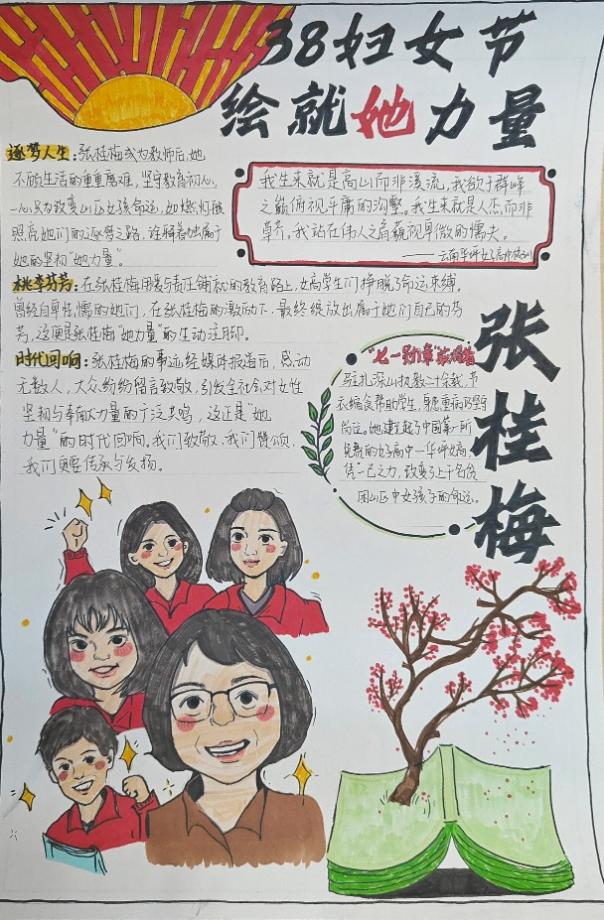 38妇女节
绘就她力量
逐梦人生：张桂梅成为教师后，她
不顾生活的重重磨难，坚守教育初心，
一心只为改变山区女孩命运，如燃灯般
照亮她们的逐梦之路，诠释着她属于
她的坚韧“她力量”。
我生来就是高山而非溪流，我欲于群峰
之巅俯视平庸的沟壑。我生来就是人杰而非
草芥，我站在伟人之肩藐视卑微的懦夫。
——云南华坪女子高中校训
桃李芬芳：在张桂梅用爱与责任铺就的教育路上，女高学生们挣脱了命运束缚。
曾经自卑怯懦的她们，在张桂梅的激励下，最终绽放出属于她们自己的芬
芳，这便是张桂梅“她力量”的生动注脚。
时代回响：张桂梅的事迹经媒体报道后，感动
无数人，大众纷纷留言致敬，引发全社会对女性
坚韧与奉献力量的广泛共鸣，这正是“她
力量”的时代回响。我们致敬，我们赞颂，
我们更要传承与发扬。
“七一勋章”获得者
驻扎深山执教二十余载，节
衣缩食帮助学生，
尚在。她建起了中国第一所
免费的女子高中—华坪女高，
凭一己之力，改变了上千名贫
困山区中女孩子的命运。
张桂梅